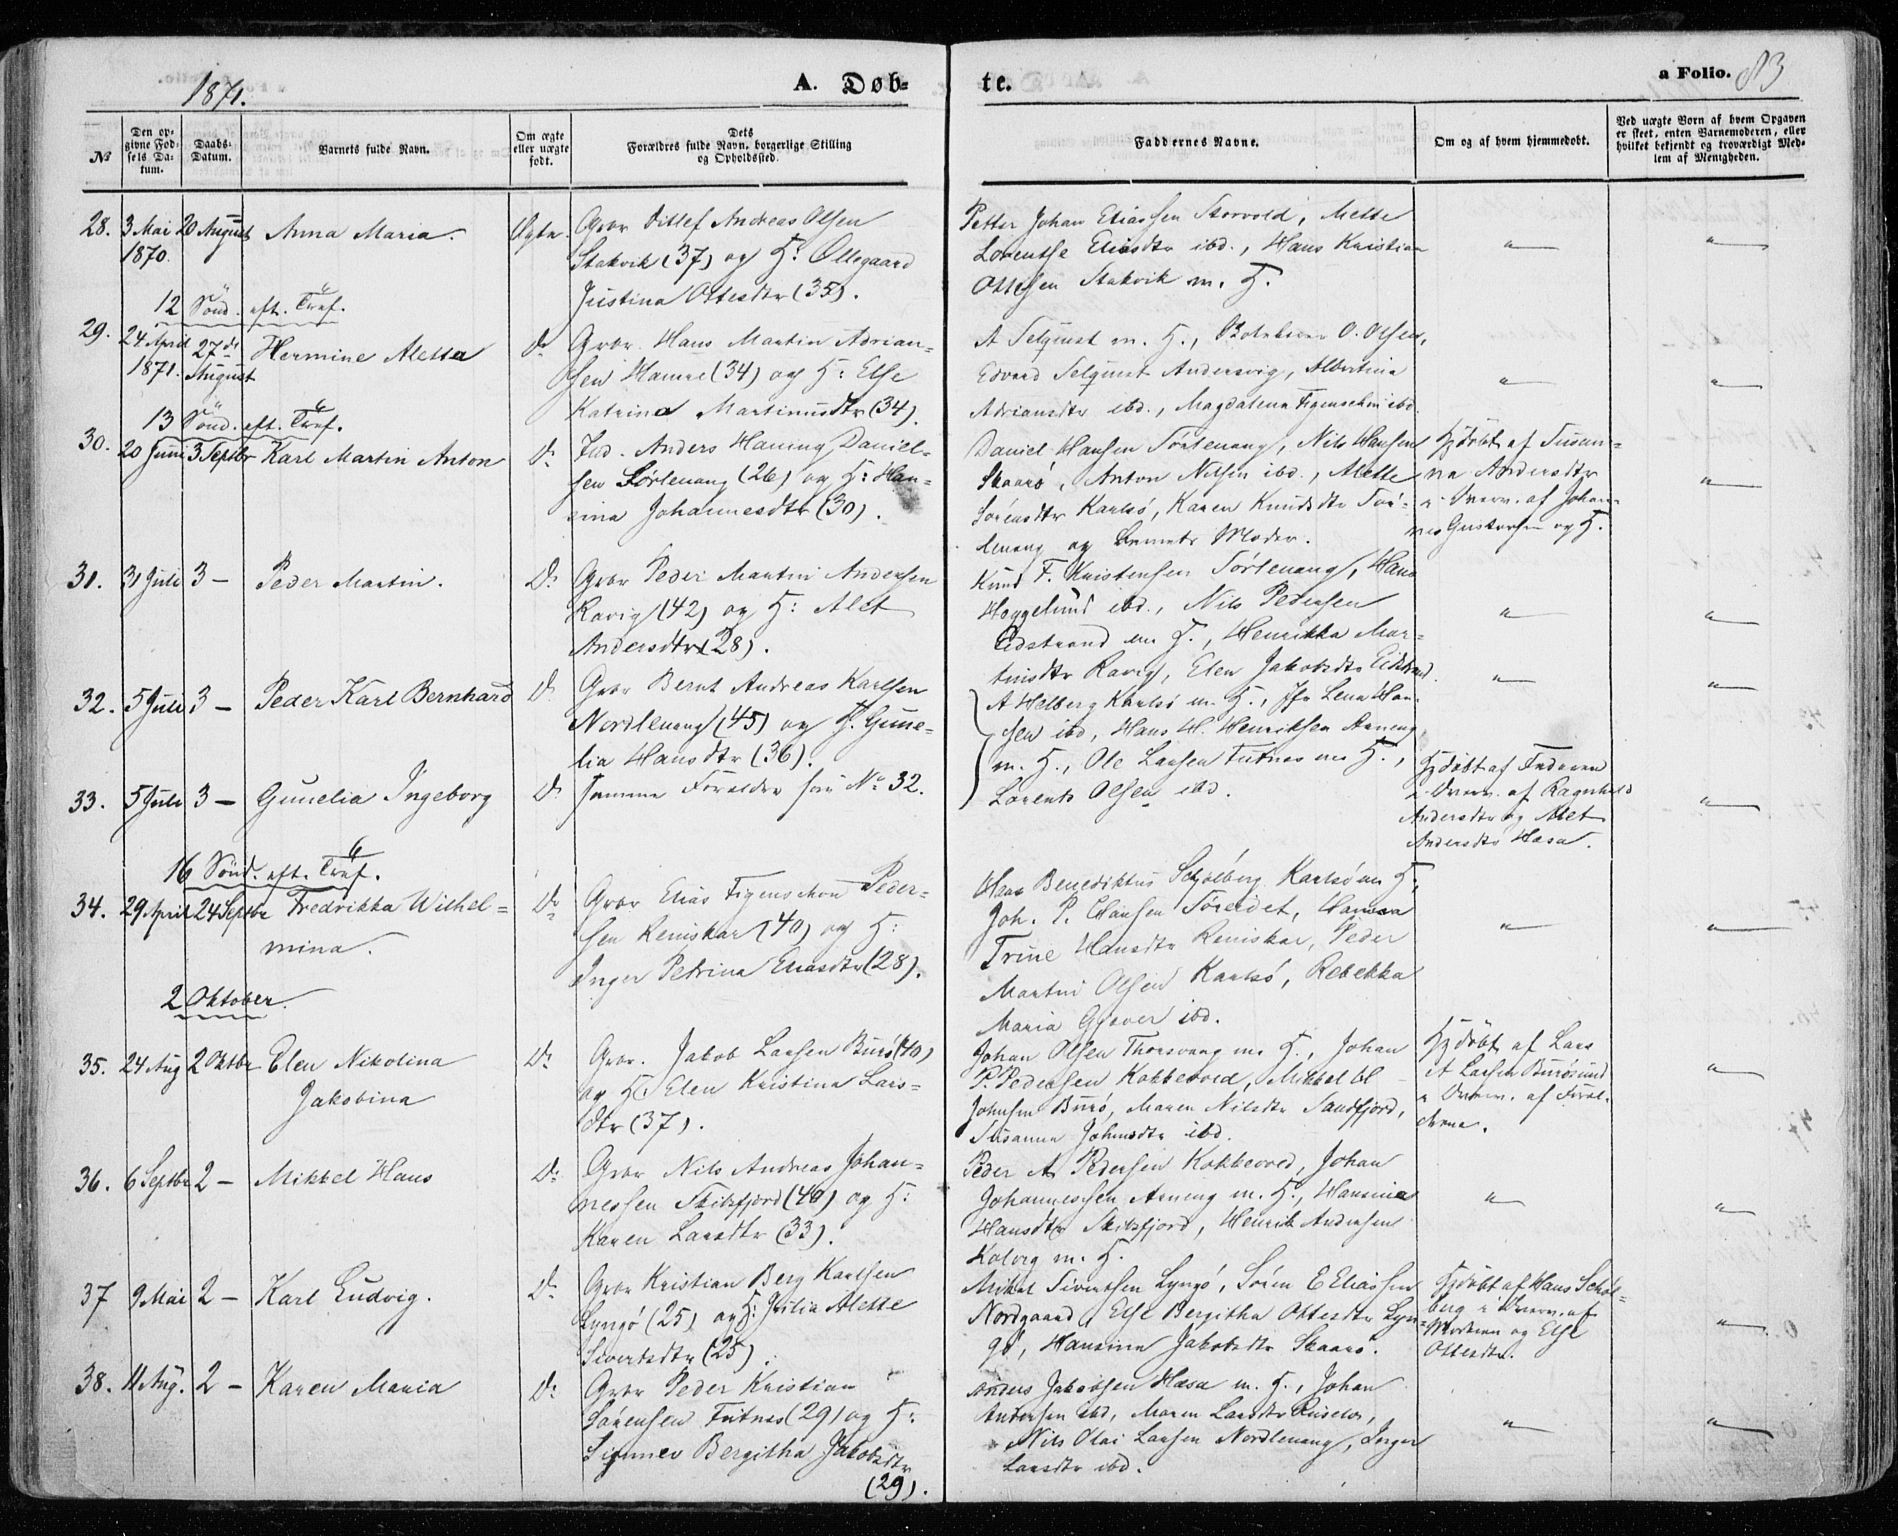 1871.
A. Døb-
te.
a Folio. 83
No
Den op-
givne Fød-
sels Da-
tum.
Daabs-
Datum.
Barnets fulde Navn.
Om ægte
eller uægte
født.
Dets
Forældres fulde Navn, borgerlige Stilling
og Opholdssted.
Faddernes Navne.
Om og af hvem hjemmedøbt.
Ved uægte Børn af hvem Opgaven
er skeet, enten Barnemoderen, eller
hvilket bekjendt og troværdigt Med-
lem af Menigheden.
28. 3 Mai 20 August Anna Maria. Ægte.
1870.
Gbr Ditlef Andreas Olsen
Stakvik (37) og H: Ollegaard
Justina Ottesdtr (35).
Petter Johan Eliassen Storvold, Mette
Lorentse Eliasdtr ibd., Hans Kristian
Ottesen Stakvik m. H.
12 Sønd. eft. Tref.
29. 24 April 27de Hermine Aletta Do
1871. August
Gbr. Hans Martin Adrian-
sen Hamre (34) og H: Else
Katrina Martinusdtr (34).
A Selquist m. H., O. Olsen,
Edvard Selquist Andersvig, Albertina
Adriansdtr ibd., Magdalena Figenschou ibd.
13 Sønd. eft. Tref.
30. 20 Juni 3 Septbr Karl Martin Anton Do
Ind. Anders Haning Daniel-
sen Sørlenang (26) og H: Han-
sina Johannesdtr (30).
Daniel Hansen Sørlenang, Nils Hansen
Skaarø, Anton Nilsen ibd., Alette
Sørensdtr Karlsø, Karen Knudsdtr Sør-
lenang og Barnets Moder.
Hjdøbt af Susan-
na Andersdtr
i Overv. af Johan-
nes Gustavsen og H.
31. 31 Juli 3 — Peder Martin. Do
Gbr Peder Martin Andersen
Ravig (42) og H: Alet
Andersdtr (28).
Knud F. Kristensen Sørlenang, Hans
Hoggelund ibd., Nils Pedersen
Eidstrand m H., Henrikka Mar-
tinsdtr Ravig, Elen Jakobsdtr Eidstrand.
32. 5 Juli 3 — Peder Karl Bernhard Do
Gbr Bernt Andreas Karlsen
Nordlenang (45) og H. Gune-
lia Hansdtr (36).
A Helberg Karlsø m. H., Jfr Lena Han-
sen ibd, Hans H. Henriksen Arneng
m. H., Ole Larsen Futnes m H.,
Lorents Olsen ibd.
33. 5 Juli 3 — Gunelia Ingeborg Do
samme Forældre som No 32.
Hjdøbt af Faderen
i Overv. af Ragnhild
Andersdtr og Alet
Andersdtr Hasa.
16 Sønd. eft. Tref.
34. 29 April 24 Septbr Fredrikka Wilhel-
mina. Do
Gbr Elias Figenschou Peder-
sen Reniskar (40) og H:
Inger Petrina Eliasdtr (28).
Hans Benediktus Schjølberg Karlsø m H.,
Joh. P. Hansen Søreidet, Hanna
Trine Hansdtr Reniskar, Peder
Martin Olsen Karlsø, Rebekka
Maria Gjæver ibd.
2 Oktober.
35. 24 Aug 2 Oktbr Elen Nikolina
Jakobina Do
Gbr. Jakob Larsen Burø (40)
og H: Elen Kristina Lars-
dtr (37).
Johan Olsen Thorsvaag m H., Johan
P. Pedersen Kokkevold, Mikkel
Johnsen Burø, Maren Nilsdtr Sandfjord,
Susanna Johnsdtr ibd.
Hjdøbt af Lars
A Larsen Burøsund
i Overv. af Foræl-
drene.
36. 6 Septbr 2 — Mikkel Hans Do
Gbr Nils Andreas Johan-
nessen Skitsfjord (40) og H:
Karen Larsdtr (33).
Peder A Pedersen Kokkevold, Johan
Johannessen Arneng m. H., Hansina
Hansdtr Skitsfjord, Henrik Andersen
Kolvig m. H.
37 9 Mai 2 — Karl Ludvig. Do
Gbr Kristian Berg Karlsen
Lyngø (25) og H: Julia Alette
Sivertsdtr (25).
Mikal Sivertsen Lyngø, Søren E Eliassen
Nordgaard, Else Bergitha Ottesdtr Lyn-
gø, Hansina Jakobsdtr Skaarø.
Hjdøbt af Hans Schøl-
berg i Overv. af
Moderen og Else
Ottesdtr.
38. 11 Aug. 2 — Karen Maria Do
Gbr Peder Kristian
Sørensen Futnes (29) og H:
Signnev Bergitha Jakobsdtr
(29).
Anders Jakobsen Hasa m. H., Johan
Andersen ibd, Maren Larsdtr,
Nils Olai Larsen Nordlenang, Inger
Larsdtr ibd.